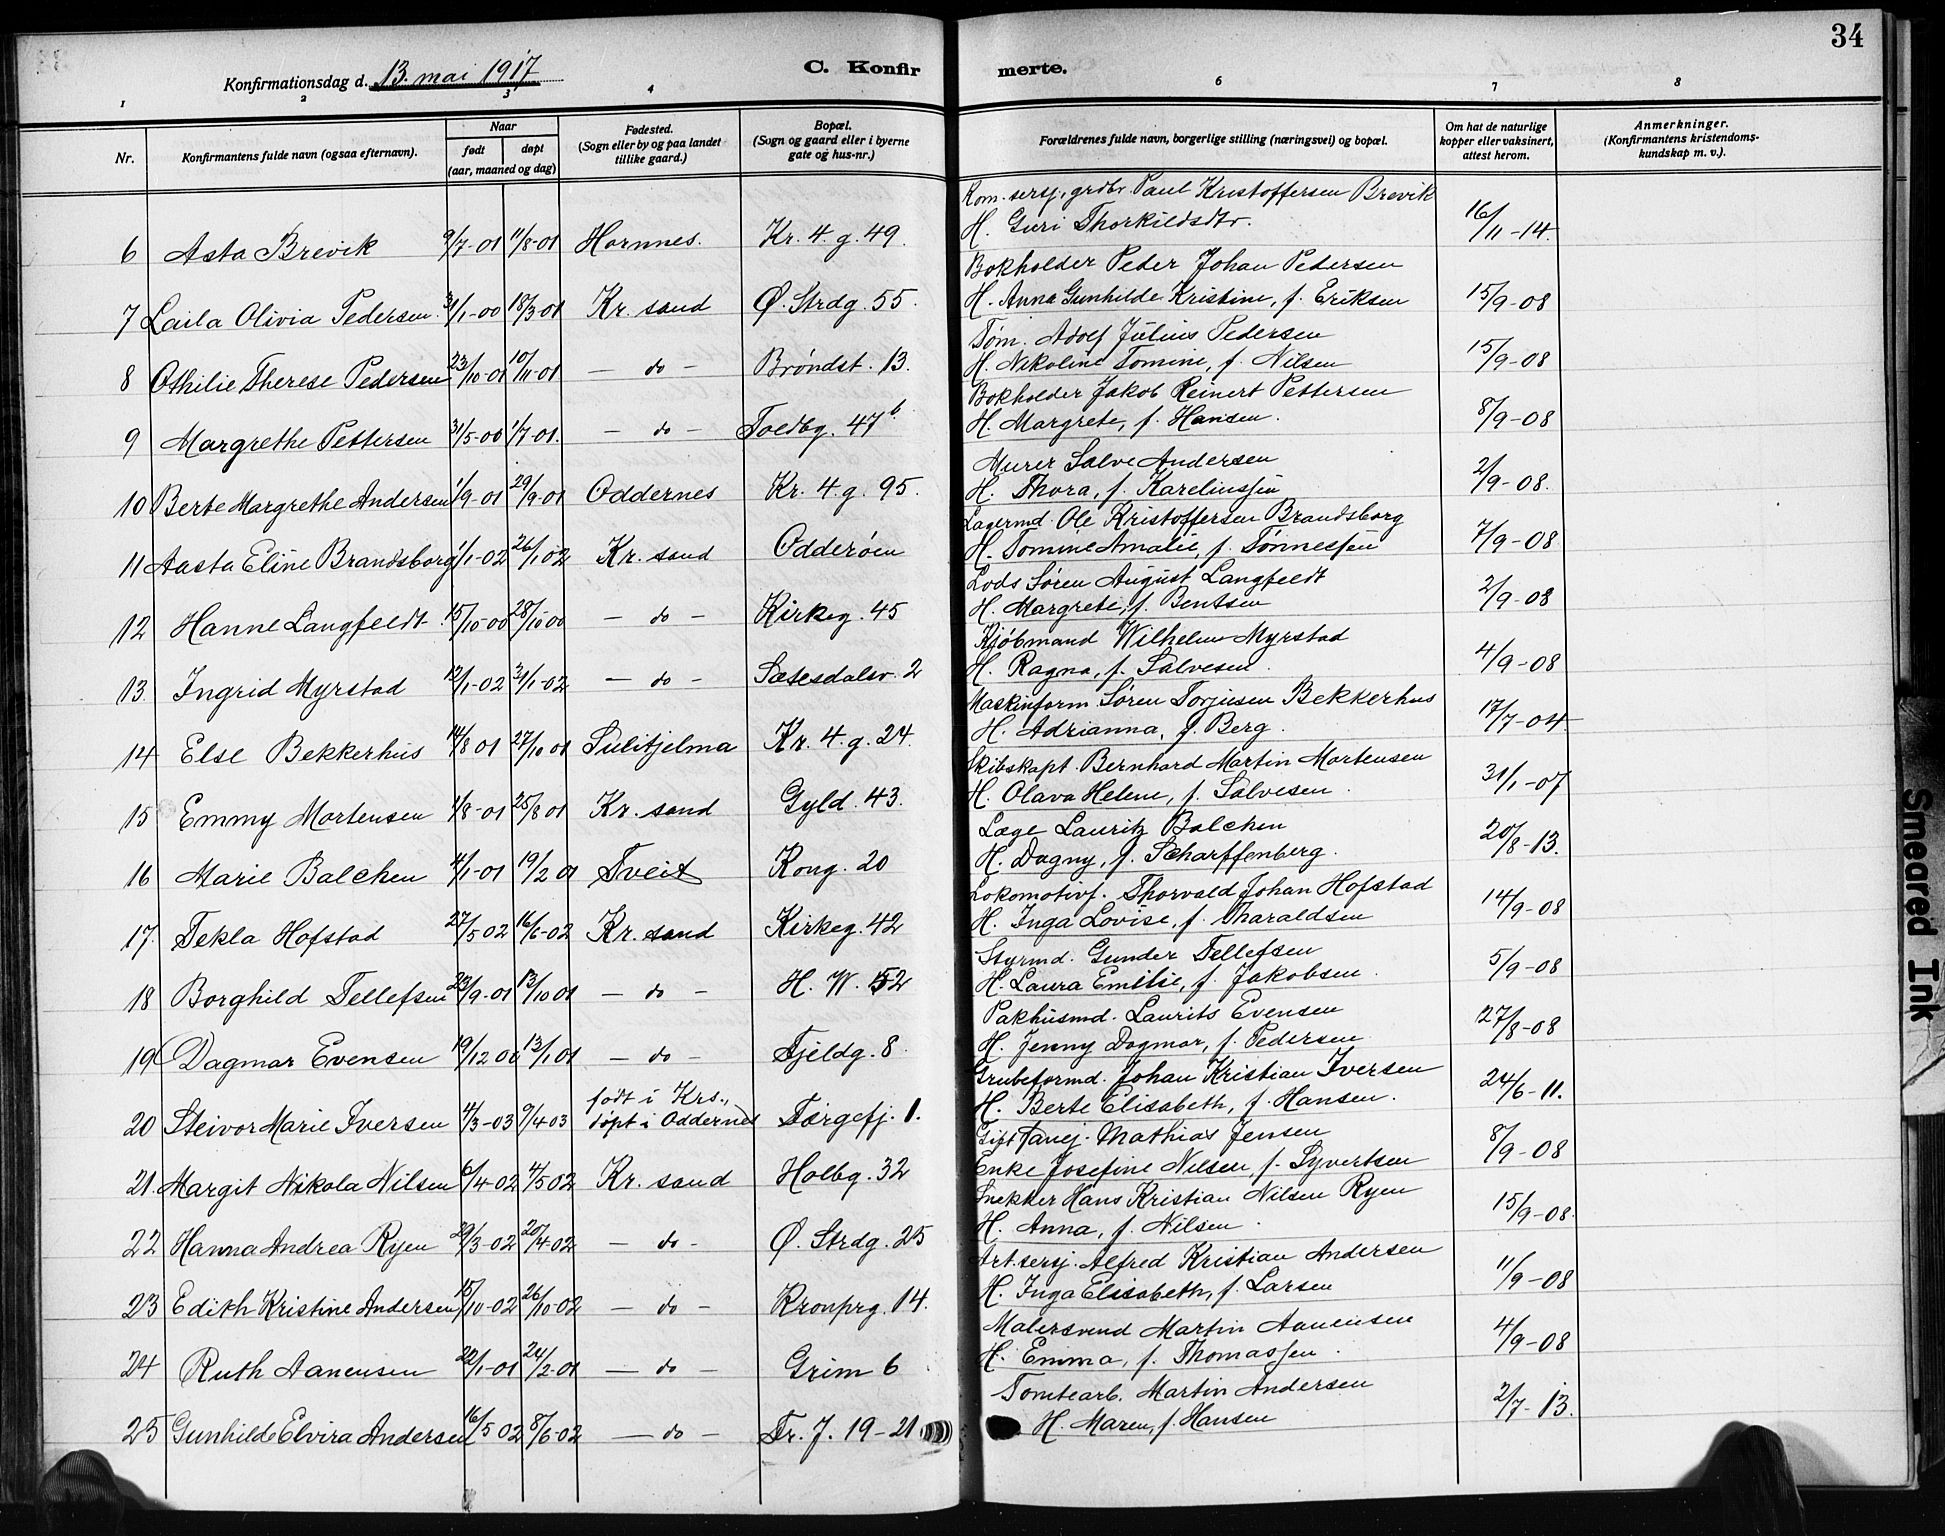 34
Konfirmationsdag d. 13. mai 1917
C. Konfirmerte.
1 2 3 4 6 7 8
Nr.
Konfirmantens fulde navn (ogsaa efternavn).
Naar
født døpt
(aar, maaned og dag)
Fødested.
(Sogn eller by og paa landet
tillike gaard.)
Bopæl.
(Sogn og gaard eller i byerne
gate og hus-nr.)
Forældrenes fulde navn, borgerlige stilling (næringsvei) og bopæl.
Om hat de naturlige
kopper eller vaksinert,
attest herom.
Anmerkninger.
(Konfirmantens kristendoms-
kundskap m. v.).
Kom. serj., grdbr. Paul Kristoffersen Brevik
6 Asta Brevik 9/7-01 11/8-01 Hornnes. Kr. 4. g. 49. H. Guri Thorkildsdtr. 16/11-14.
Bokholder Peder Johan Pedersen
7 Laila Olivia Pedersen 31/1-00 18/3-01 Kr. sand Ø. Strdg. 55. H. Anna Gunhilde Kristine, f. Eriksen 15/9-08
Tøm. Adolf Julius Pedersen
8 Othilie Therese Pedersen 23/10-01 10/11-01 - do - Brøndst. 13. H. Nikoline Tomine, f. Nilsen 15/9-08
Bokholder Jakob Reinert Pettersen
9 Margrethe Pettersen 31/5-00 1/7-01. - do - Toldbg. 47 b H. Margrete, f. Hansen. 8/9-08
Murer Salve Andersen
10 Berte Margrethe Andersen 1/9-01 29/9-01 Oddernes Kr. 4. g. 95. H. Thora, f. Karelinssen 2/9-08.
Lagermd. Ole Kristoffersen Brandsborg
11 Aasta Eline Brandsborg 1/1-02 26/1 02 Kr. sand Odderøen H. Tomine Amalie, f. Tønnessen 7/9-08
Lods Søren August Langfeldt
12 Hanne Langfeldt. 15/10-00 28/10 00 - do - Kirkeg. 45 H. Margrete, f. Bentsen 2/9-08
Kjøbmand Wilhelm Myrstad
13. Ingrid Myrstad 12/1-02 31/1-02 - do - Sætesdalsv. 2 H. Ragna, f. Salvesen. 4/9-08
Maskinform. Søren Torjusen Bekkerhus
14 Else Bekkerhus 14/8 01 27/10 01 Sulitjelma Kr. 4. g. 24. H. Adrianna, f. Berg. 17/7-04.
Skibskapt. Bernhard Martin Mortensen
15 Emmy Mortensen 1/8-01 25/8 01 Kr. sand Gyld. 43. H. Olava Helene, f. Salvesen. 31/1-07
Læge Lauritz Balchen
16 Marie Balchen 4/1-01 19/2 01 Tveit Kong. 20 H. Dagny, f. Scharffenberg. 20/8-13.
Lokomotivf. Thorvald Johan Hofstad
17. Tekla Hofstad 27/5 02 16/6-02 Kr. sand Kirkeg. 42 H. Inga Lovise, f. Tharaldsen 14/9-08
Styrmd. Gunder Tellefsen
18 Borghild Tellefsen 23/9-01 13/10 01 - do - H. W. 52 H. Laura Emilie, f. Jakobsen. 5/9-08
Pakhusmd. Laurits Evensen
19 Dagmar Evensen 19/12 00 13/1 01 - do - Fjeldg. 8. H. Jenny Dagmar, f. Pedersen. 27/8-08
Grubeformd. Johan Kristian Iversen
20 Steivor Marie Iversen 4/3-03 9/4-03 født i Krs., døpt i Oddernes Torgefj. 1. H. Berte Elisabeth, f. Hansen. 24/6-11.
Mathias Jensen
21. Margit Nikola Nilsen 6/4-02 4/5 02 Kr. sand Holbg. 32 Enke Josefine Nilsen f. Syvertsen 8/9-08
Snekker Hans Kristian Nilsen Ryen
22 Hanna Andrea Ryen 29/3-02 20/4-02 - do - Ø. Strdg. 25 H. Anna, f. Nilsen. 15/9-08.
Art. serj. Alfred Kristian Andersen
23 Edith Kristine Andersen 15/10-02 26/10-02 - do - Kronprg. 14. H. Inga Elisabeth, f. Larsen 11/9-08
Malersvend Martin Aanensen
24 Ruth Aanensen 22/1-01 24/2-01 - do - Grim 6 H. Emma, f. Thomassen. 4/9-08
Tomtearb. Martin Andersen
25 Gunhilde Elvira Andersen 16/5 02 8/6-02 - do - Fr. J. 19-21 H. Maren, f. Hansen 2/7-13.
Smeared Ink